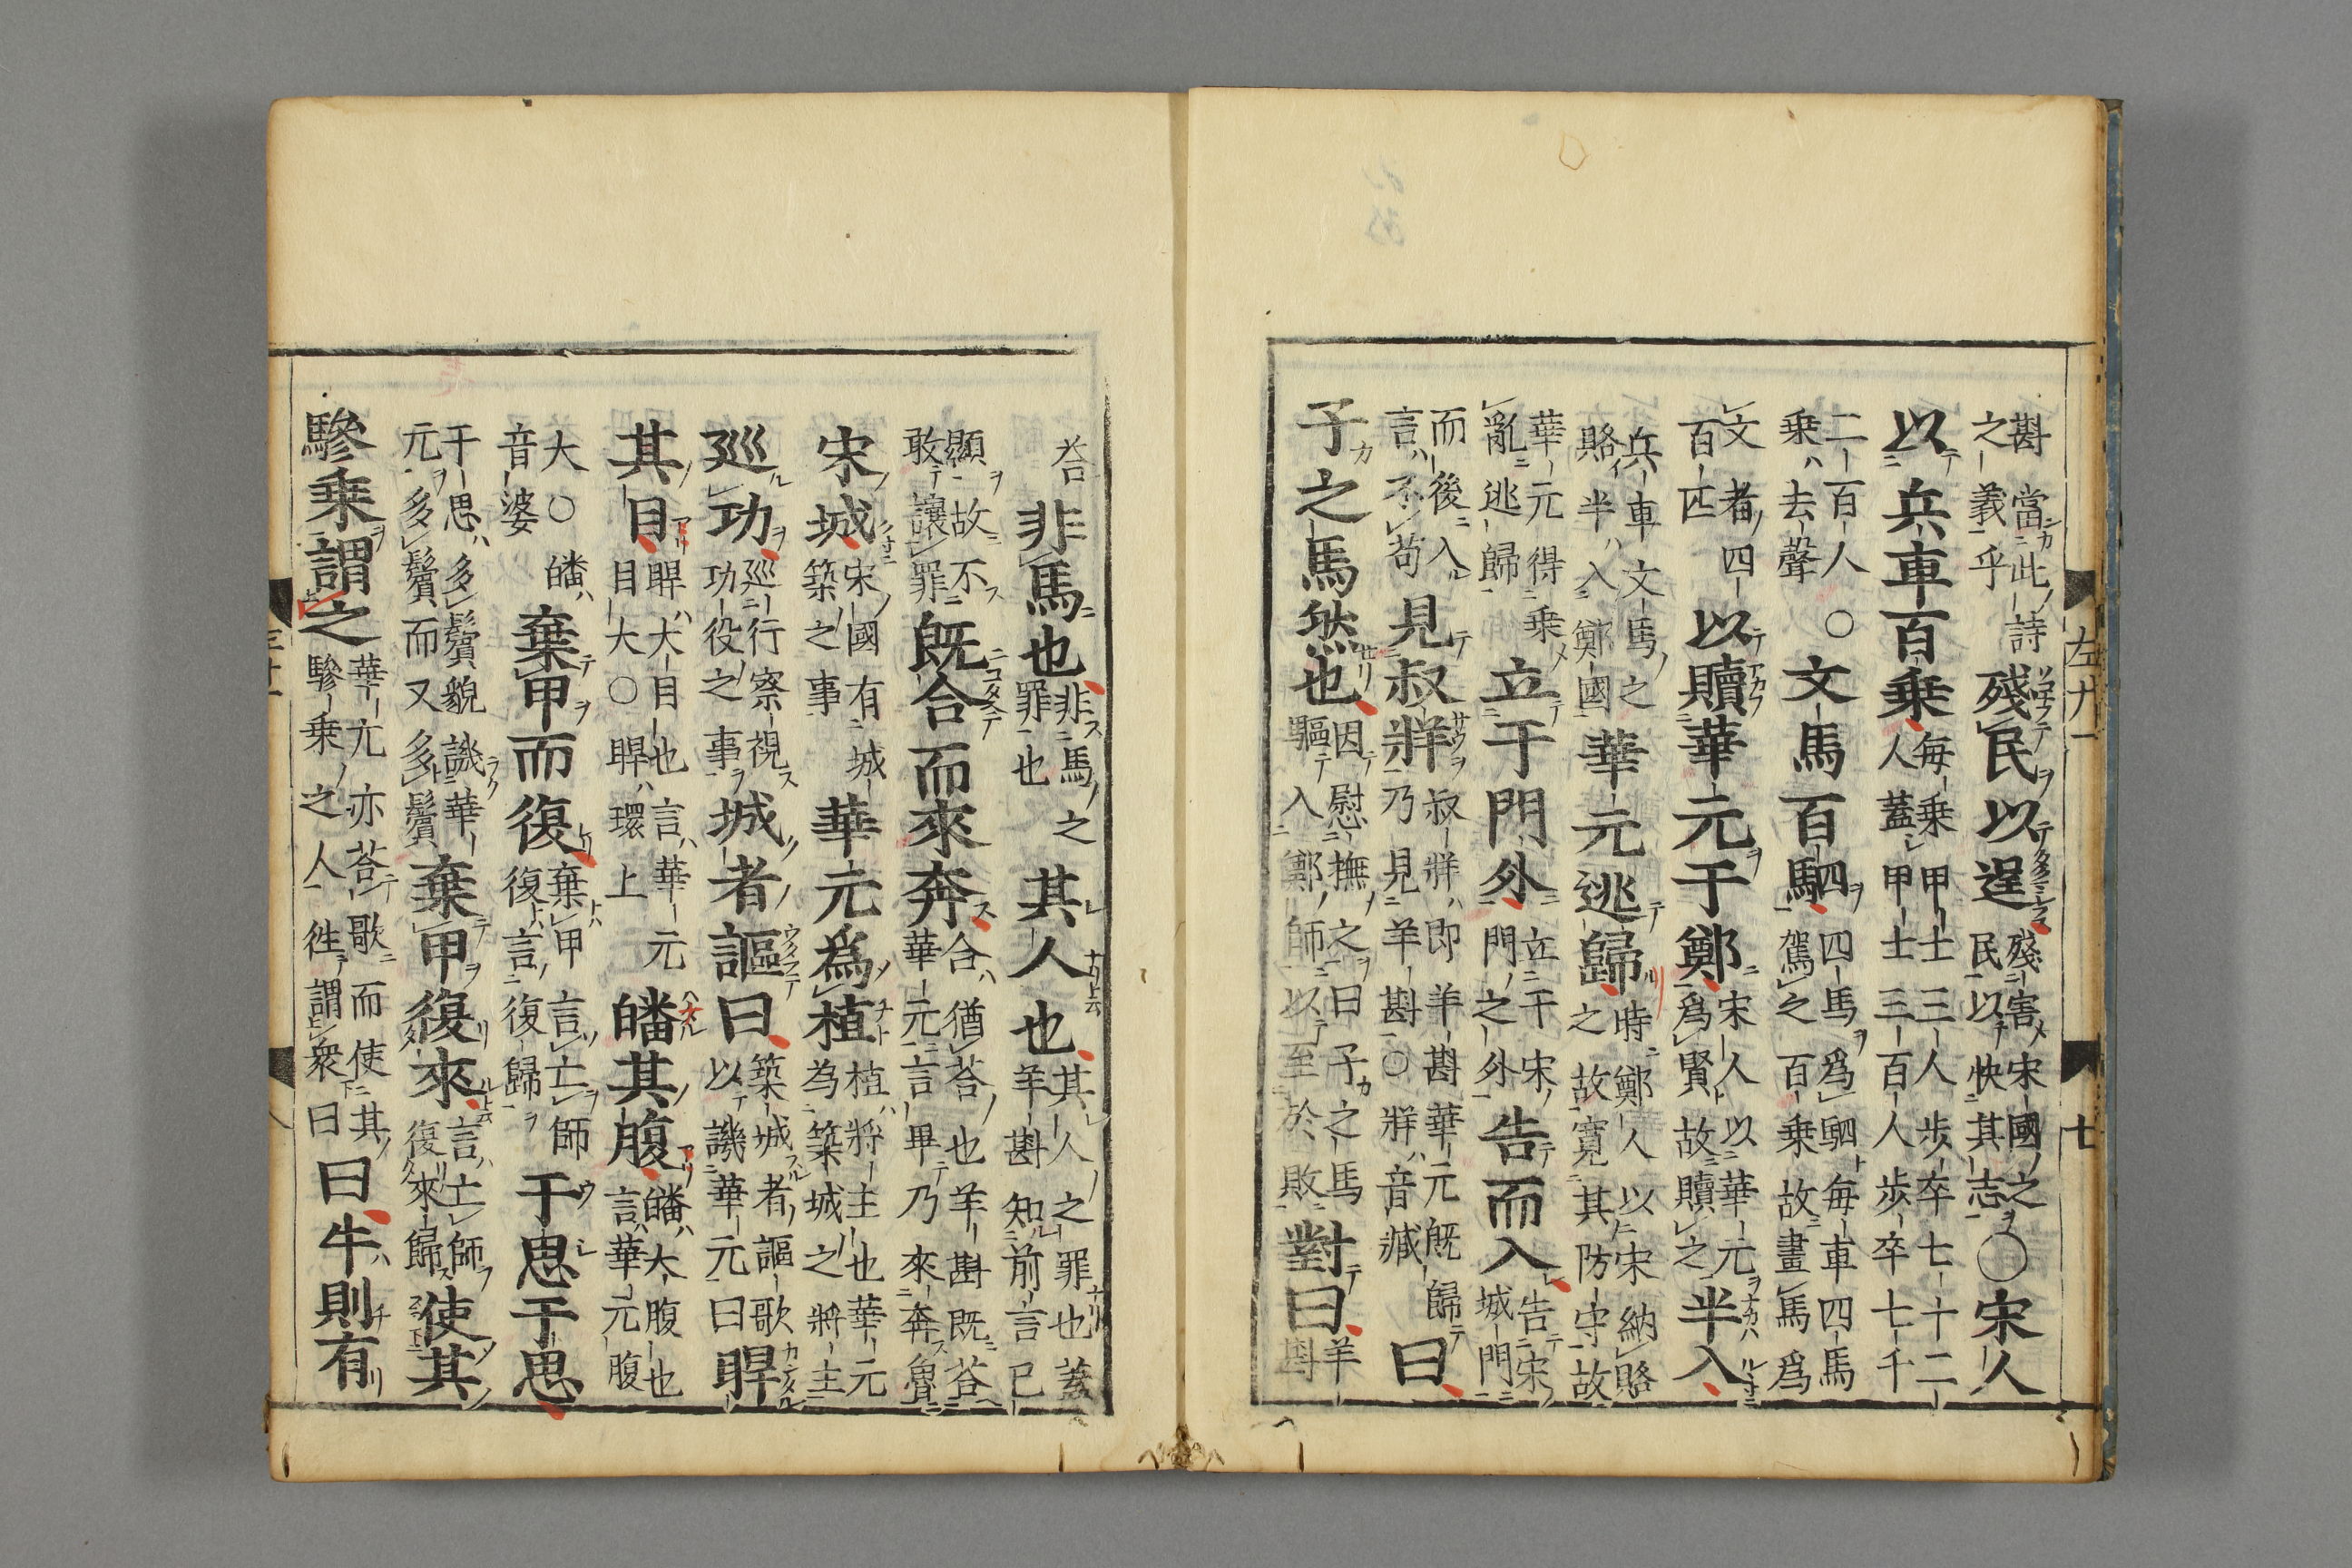 斟當此詩之義乎殘民以逞殘害宋國之民以快其志○宋人
以兵車百乗每乗甲士三人步卒七十二人蓋甲士三百人步卒七千
二百人○乗去聲文馬百駟四馬爲駟每車四馬駕之百乗故畫馬爲
文者四百匹以贖華元于鄭宋人以華元爲賢故贖之半入
兵車文馬之賂半入鄭國華元逃歸時鄭人以宋納賂之故寬其防守故
華元得乗亂逃歸立于門外立于宋門之外告而入告宋城門
而後入言不苟見叔牂叔牂即羊斟華元既歸乃見羊斟○牂音臧曰
子之馬然也因慰撫之曰子之馬驅入鄭師以至於敗對曰羊斟
左九
七
荅非馬也非馬之罪也其人也其人之罪也蓋羊斟知前言已
顯故不敢讓罪既合而來奔合猶荅也羊斟既荅華元言畢乃來奔魯
宋城宋國有城築之事華元爲植植將主也華元為築城之將主
廵功廵行察視功役之事城者謳曰築城者謳歌以譏華元曰睅
其目睅大目也言華元目大○睅環上皤其腹皤大腹也言華元腹
大○皤音婆棄甲而復棄甲言亡師復言復歸于思于思
于思多鬢貌譏華元多鬢而又多鬢棄甲復來言亡師復來歸使其
驂乗謂之華元亦荅歌而使其驂乗之人徃謂衆曰曰牛則有